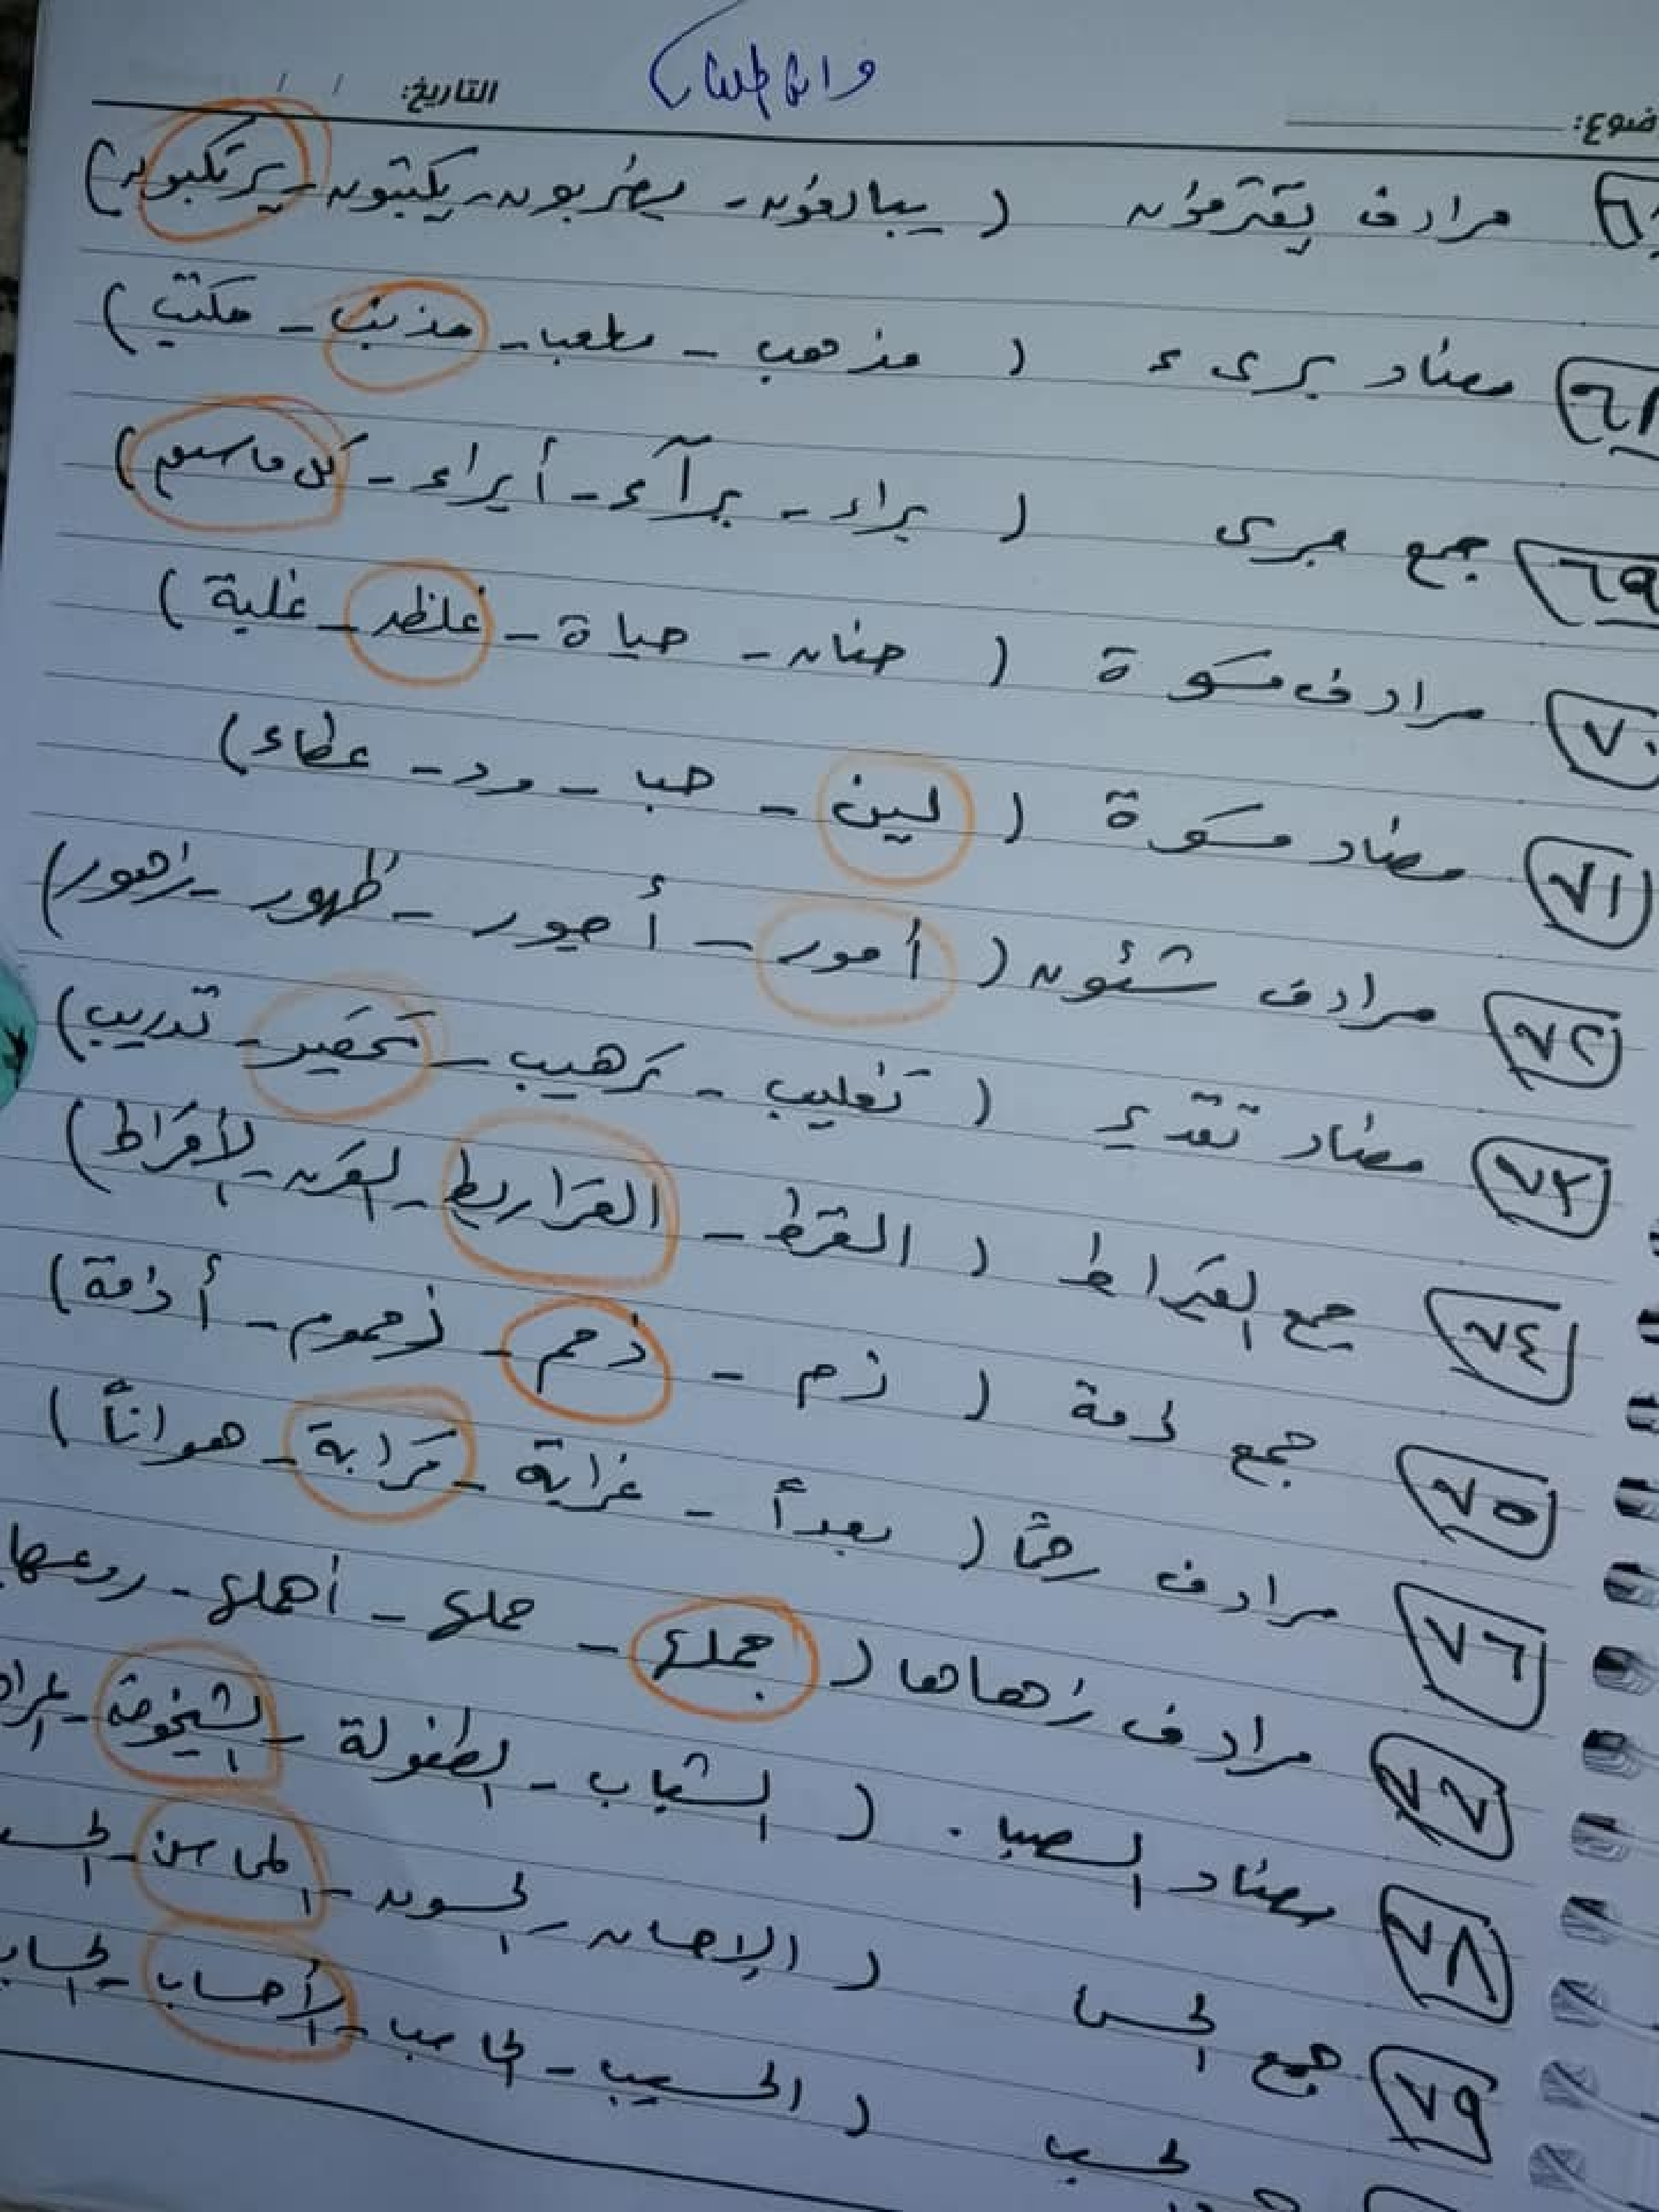 التاريخ: / /
ضوع:
٦٧ مرادف يقترفون ( يبالغون - يضربون - يكتبون - يرتكبون )
٦٨ مضاد برىء ( مذهب - ملعب - مذنب - مكتب )
٦٩ جمع برى ( براء - برآء - أبراء - كل ماسبق )
٧٠ مرادف قسوة ( حنان - حياة - غلظة - غلبة )
٧١ مضاد قسوة ( لين - حب - ود - عطاء )
٧٢ مرادف شئون ( أمور - أجور - ظهور - زهور )
٧٣ مضاد تقدير ( تغليب - ترهيب - تحقير - تدريب )
٧٤ جمع القيراط ( القرط - القراريط - القرن - الأقراط )
٧٥ جمع ذمة ( ذم - ذمم - ذمموم - أذمة )
٧٦ مرادف رحمًا ( بعدأ - غرابة - قرابة - هوانأ )
٧٧ مرادف زهاها ( جملها - حملها - أهملها - روعها
٧٨ مضاد الصبا . ( الشباب - الطفولة - الشيخوخة -
٧٩ جمع الحسن ( الإحسان - الحسون - المحاسن -
الحسب ( الحسيب - الحاسب - الأحساب -